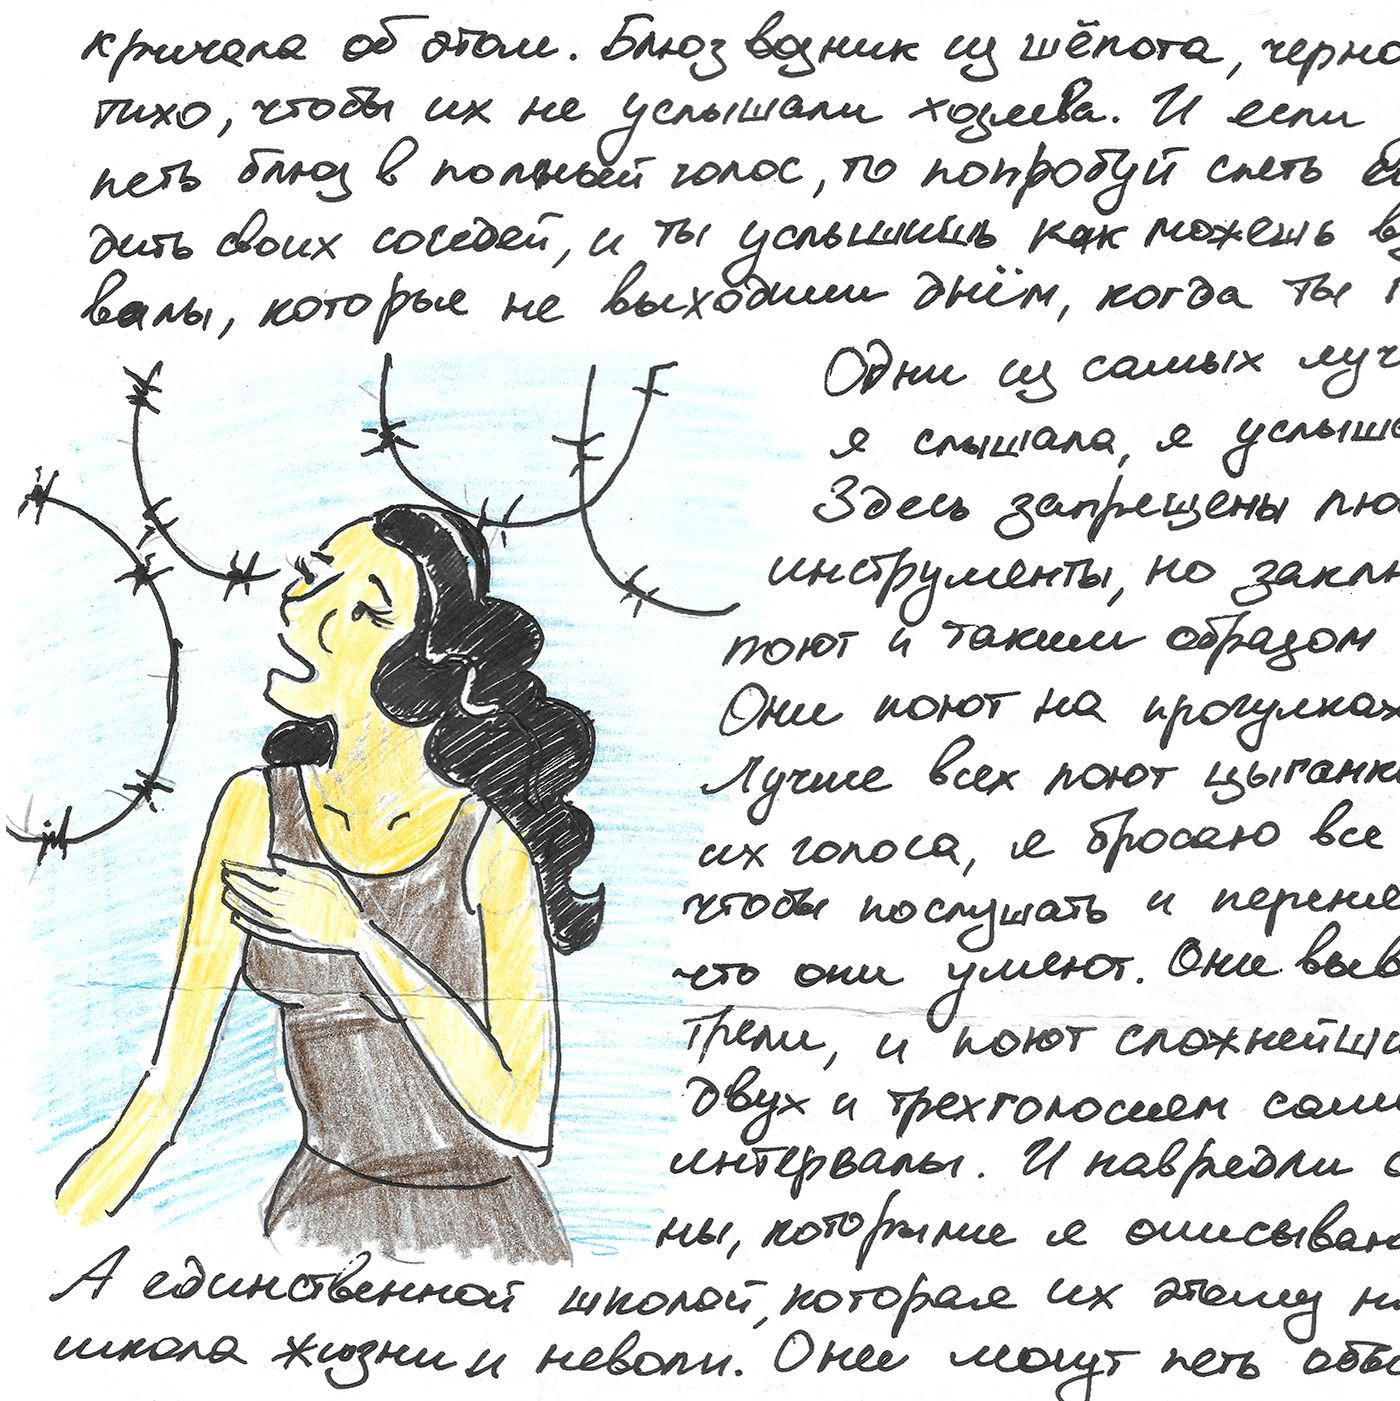 кричала об этом. Блюз возник из шёпота, черно
тихо, чтобы их не услышали хозяева. И если
петь блюз в полный голос, то попробуй спеть
дить своих соседей, и ты услышишь как можешь
валы, которые не выходили днём, когда ты
Одни из самых луч
я слышала, я услыша
Здесь запрещены лю
инструменты, но заклю
поют и таким образом
Они поют на прогулках
Лучше всех поют цыганк
их голоса, я бросаю все
чтобы послушать и переня
что они умеют. Они выв
трели, и поют сложнейши
двух и трехголосием сам
интервалы. И навредли
ны, которые я описываю
А единственной школой, которая их этому н
школа жизни и неволи. Они могут петь обо